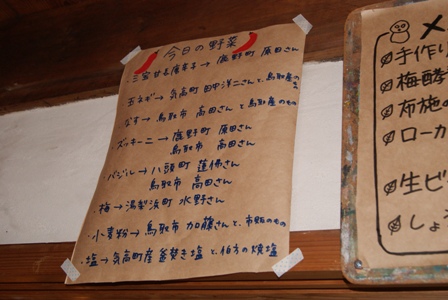 今日の野菜
・三宝甘長唐辛子→鹿野町 原田さん
玉ネギ→気高町 田中洋二さんと、鳥取産のもの
なす→鳥取市 高田さんと鳥取産のもの
ズッキーニ→鹿野町 原田さん
鳥取市 高田さん
バジル→八頭町 蓮佛さん
鳥取市 高田さん
・梅→湯梨浜町 水野さん
・小麦粉→鳥取市 加藤さんと、市販のもの
・塩→気高町産釜焚き塩と、伯方の焼塩
メ
手作り
梅酵
布施の
ローカ
生ビ
しょ